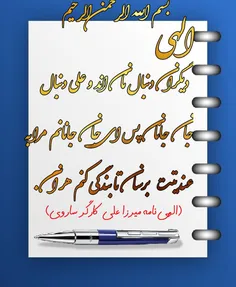 بسم الله الرحمن الرحیم
الهی
دیگران دنبال نان اند و علی دنبال
جان جانان پس ای جان جانانم مرا به
عبدیتت برسان تا بندگی کنم هر آن.
(الهی نامه میرزا علی کارگر ساروی)